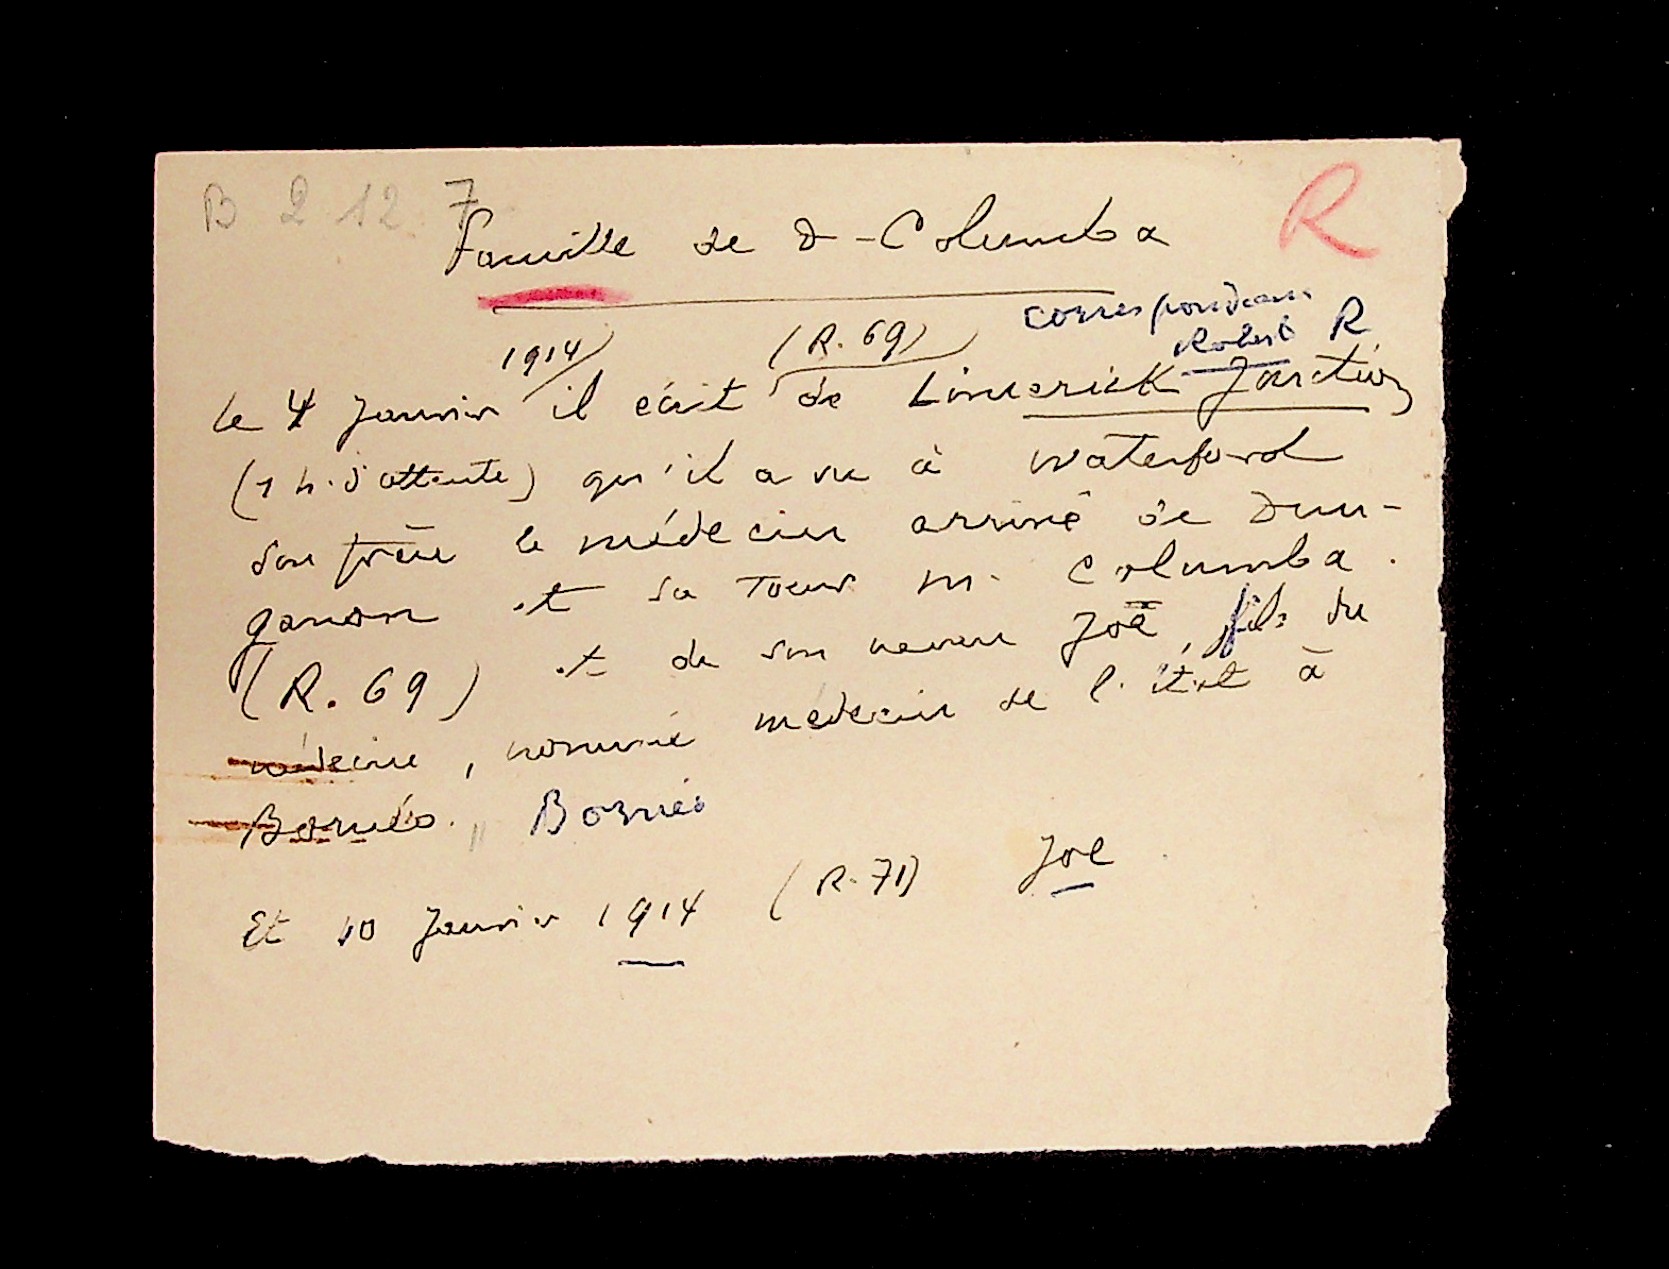 B 2 12 7
R
Famille de D-Columba
correspondan
1914 (R. 69) Robert R
le 4 Janvier il écrit de Limerick Jonction
(1 h. d'attente) qu'il a vu à Waterford
son frère le médecin arrivé de Dun-
ganon et sa soeur M. Columba.
(R. 69) et de son neveu Joë, fils du
médecin, nommé médecin de l'état à
Bornéo. " Bornéo
Et 10 Janvier 1914 (R. 71) Joe